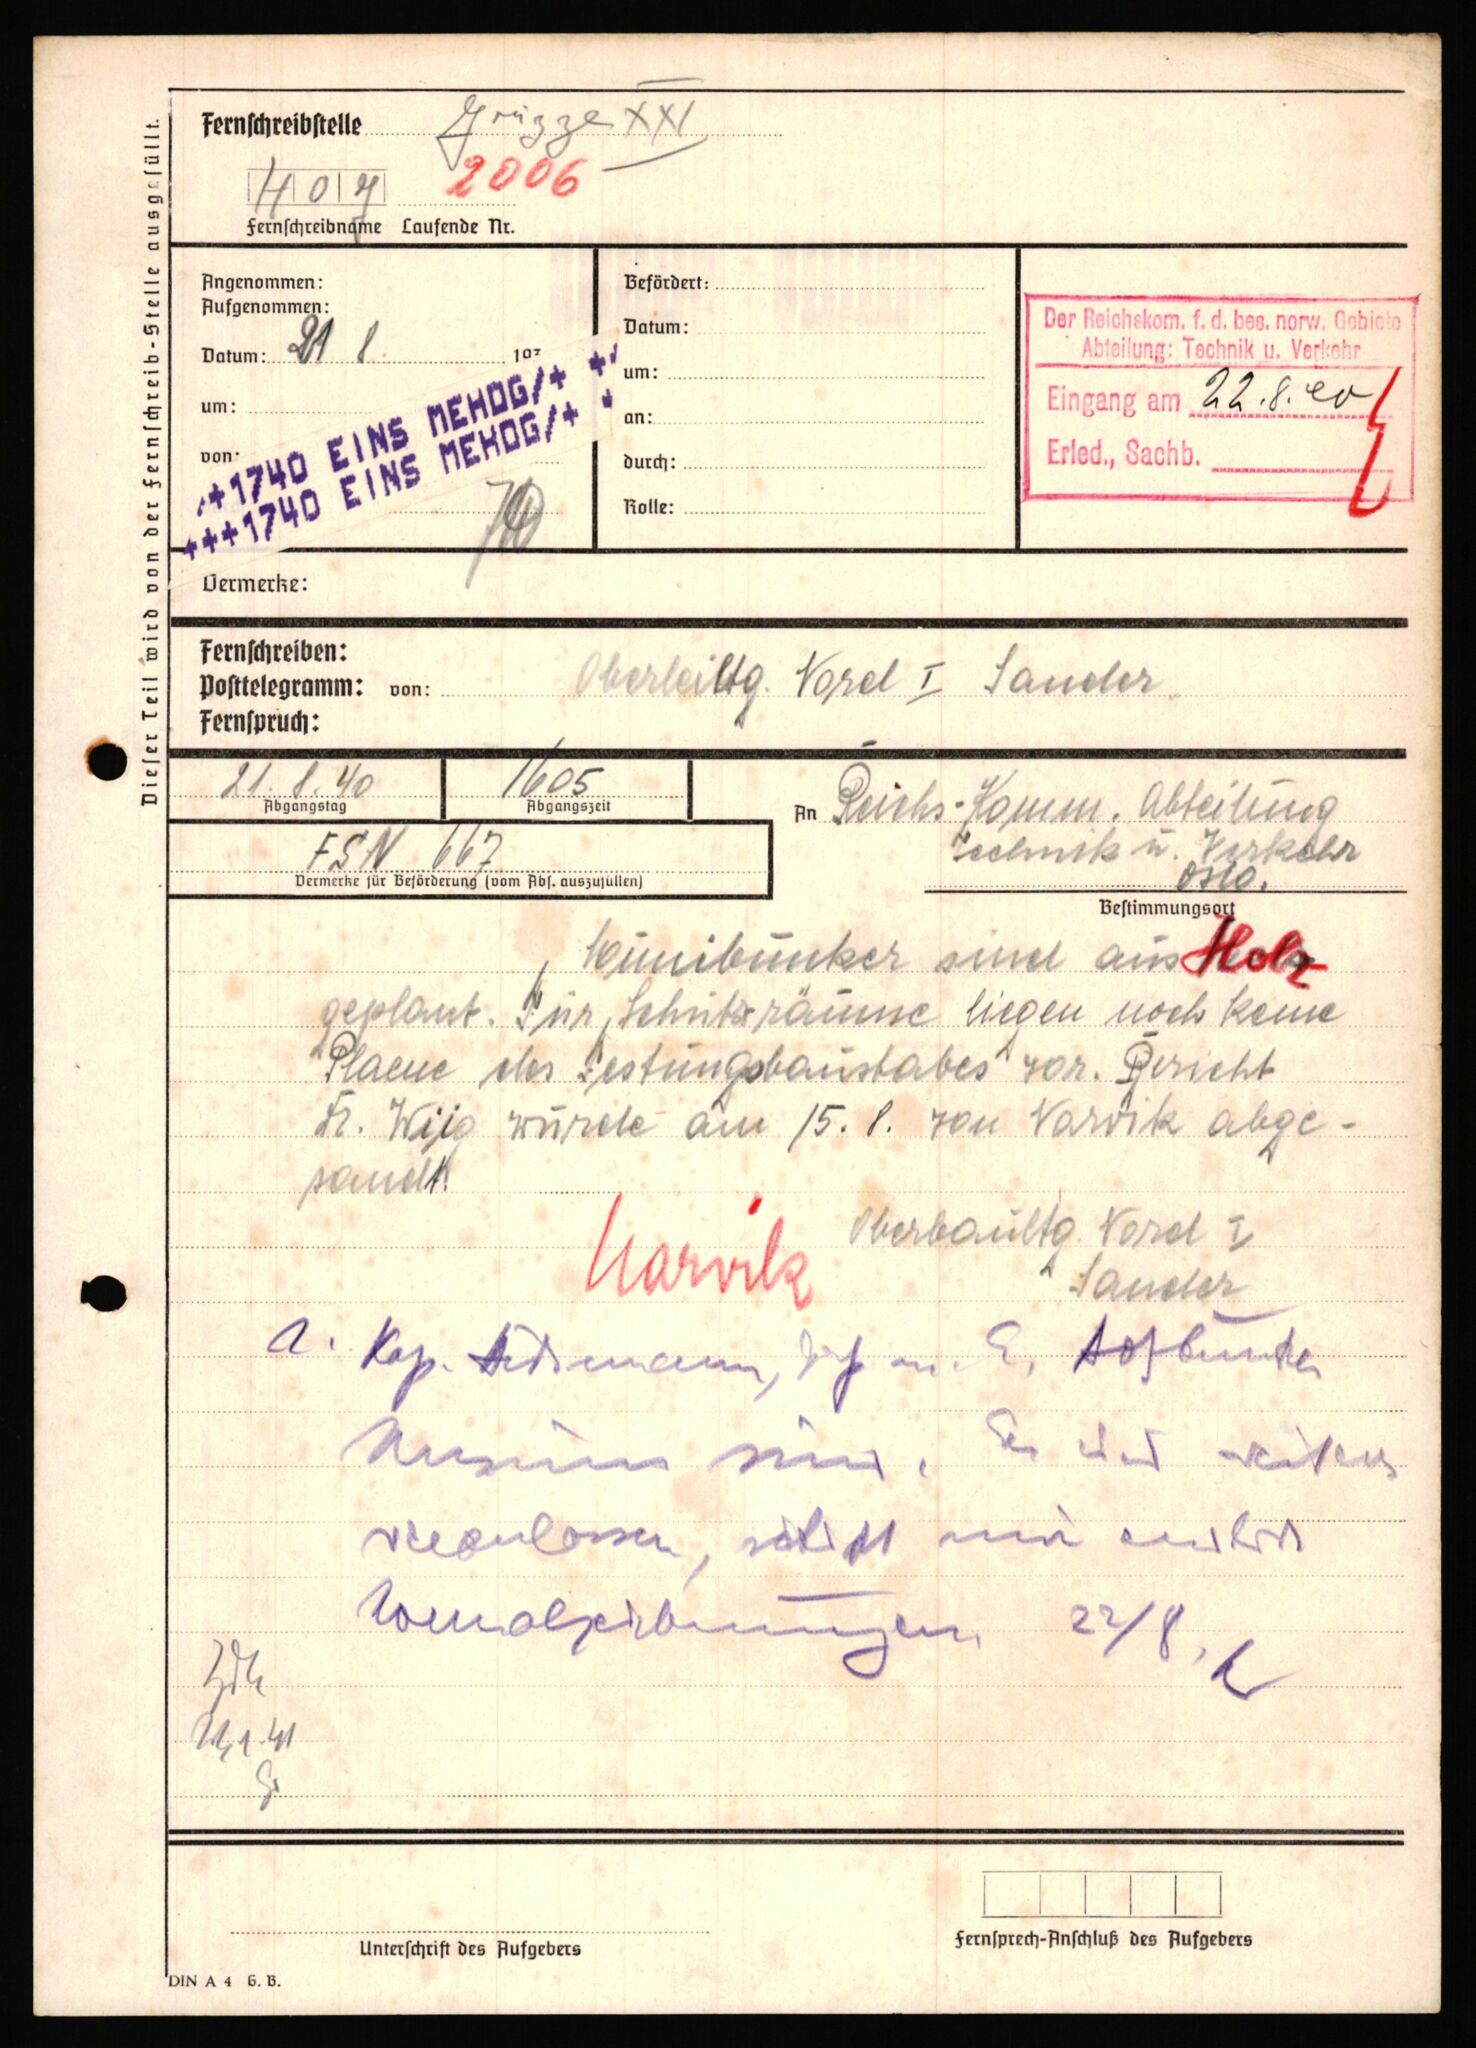 Dieser Teil wird von der Fernschreib-Stelle ausgefüllt.
Fernschreibstelle XXI
407 2006
Fernschreibname Laufende Nr.
Angenommen:
Aufgenommen:
Datum: 21 8. 19
um:
von:
+1740 EINS MEHOG/+ +
+++1740 EINS MEHOG/+
Befördert:
Datum:
um:
an:
durch:
Rolle:
Der Reichskom. f. d. bes. norw. Gebiete
Abteilung: Technik u. Verkehr
Eingang am 22.8.40
Erled., Sachb.
Vermerke:
Fernschreiben:
Posttelegramm: von: Oberleiltg. Nord I Sander
Fernspruch:
21.8.40
Abgangstag
1605
Abgangszeit
An Reichs-Komm. Abteilung
Technik u. Verkehr
Oslo.
Bestimmungsort
FSN 667
Vermerke für Beförderung (vom Abs. auszufüllen)
Munibunker sind aus Holz
geplant. Für Schutzräume liegen noch keine
Plaene des Festungsbaustabes vor. Bericht
Dr. wurde am 15.8. von Narvik abge-
sandt.
Narvik
Oberbaultg. Nord I
Sander
1. Kap.
sind. Er wird
veranlassen,
22/8.
ZdA
41
Unterschrift des Aufgebers
Fernsprech-Anschluß des Aufgebers
DIN A 4 G. B.